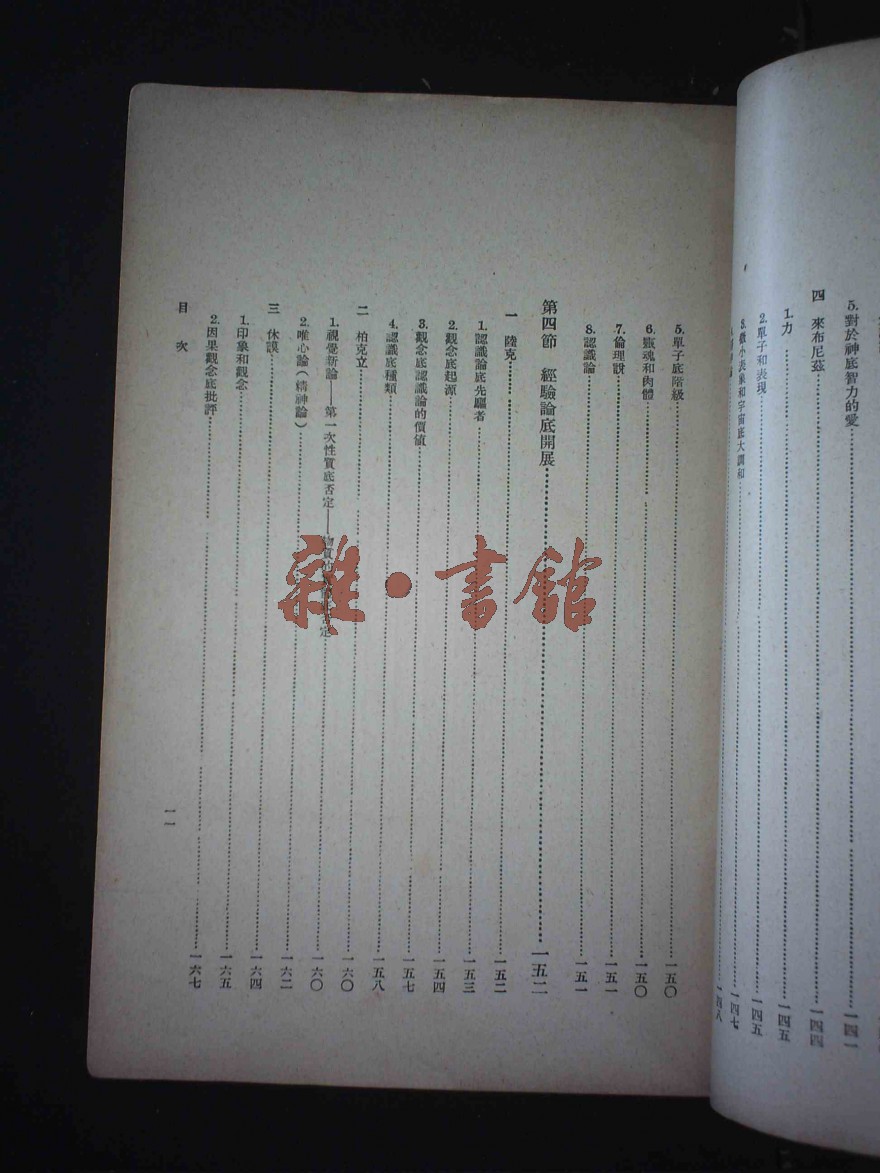 5. 對於神底智力的愛 一四一
四 來布尼茲 一四四
1. 力 一四五
2. 單子和表現 一四五
3. 微小表象和宇宙底大調和 一四七
一四八
5. 單子底階級 一五〇
6. 靈魂和肉體 一五〇
7. 倫理說 一五一
8. 認識論 一五一
第四節 經驗論底開展 一五二
一 陸克 一五二
1. 認識論底先驅者 一五三
2. 觀念底起源 一五四
3. 觀念底認識論的價值 一五七
4. 認識底種類 一五八
二 柏克立 一六〇
1. 視覺新論——第一次性質底否定——物質的 定 一六〇
2. 唯心論(精神論) 一六二
三 休謨 一六四
1. 印象和觀念 一六五
2. 因果觀念底批評 一六七
目次
一一
雜·書館